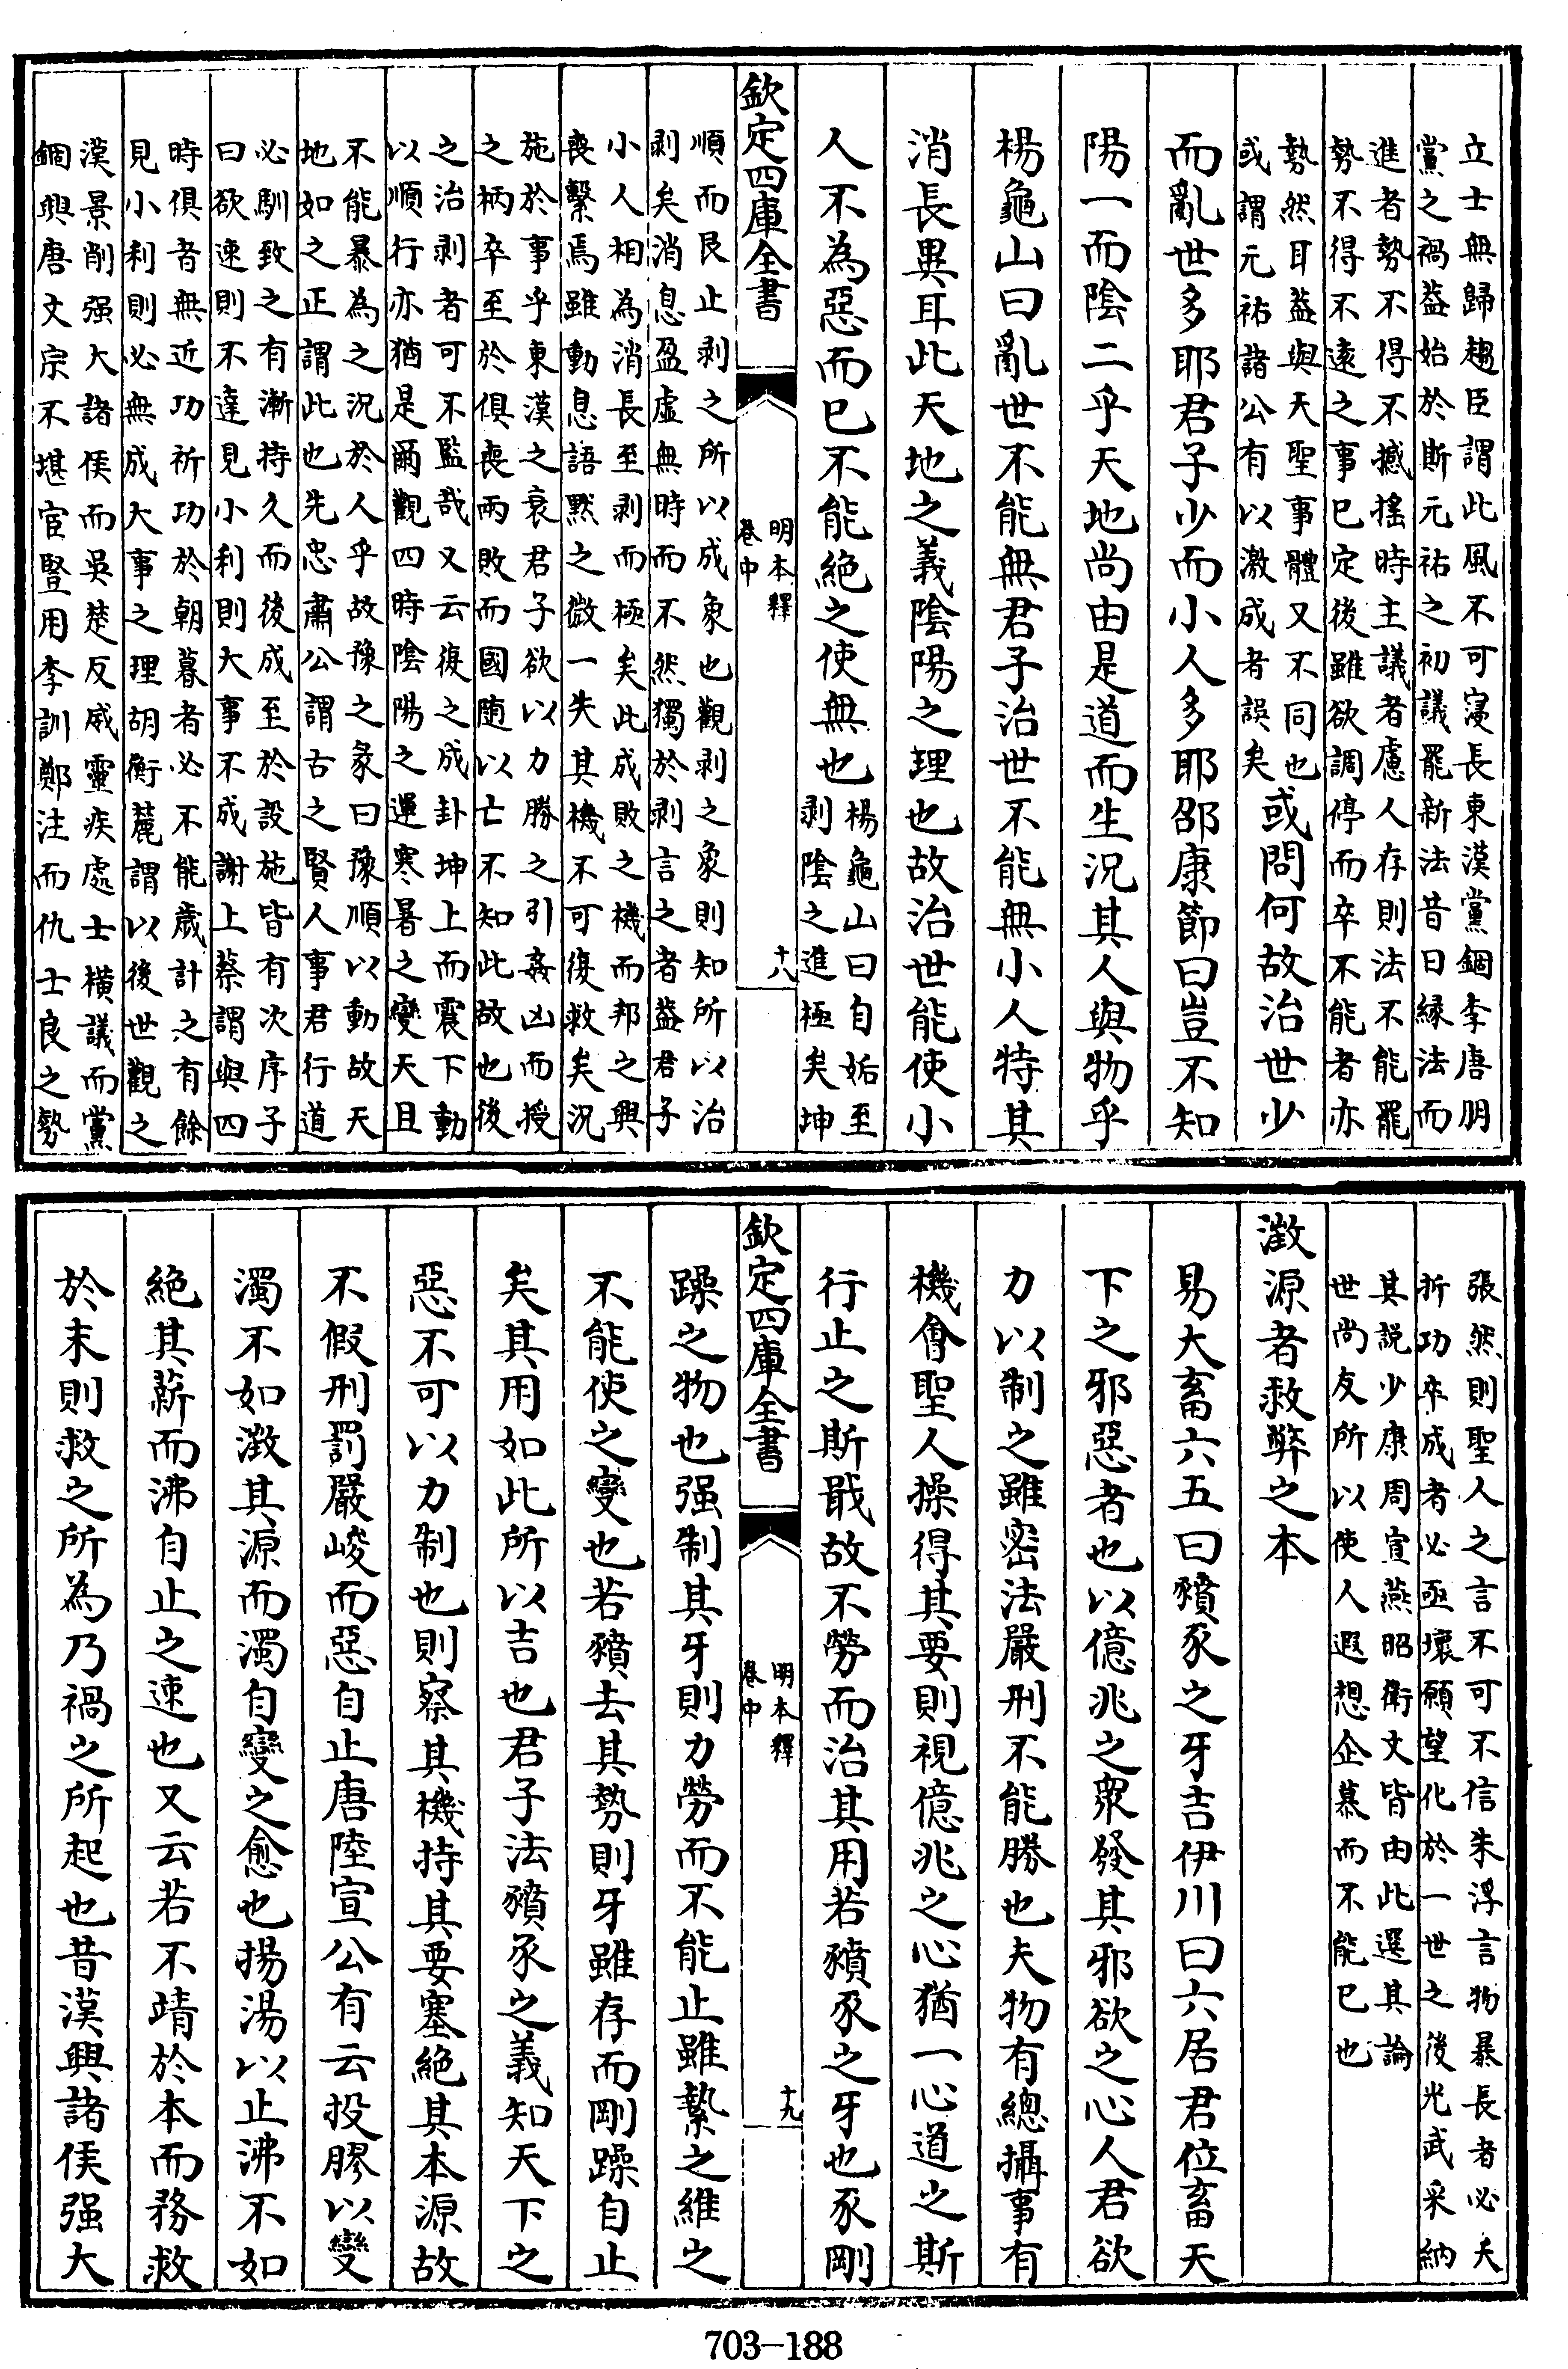 立士無歸趨臣謂此風不可寖長東漢黨錮李唐朋
黨之禍葢始於斯元祐之初議罷新法昔日緣法而
進者勢不得不撼搖時主議者慮人存則法不能罷
勢不得不遠之事已定後雖欲調停而卒不能者亦
勢然耳葢與天聖事體又不同也
或謂元祐諸公有以激成者誤矣
或問何故治世少
而亂世多耶君子少而小人多耶邵康節曰豈不知
陽一而陰二乎天地尚由是道而生況其人與物乎
楊龜山曰亂世不能無君子治世不能無小人特其
消長異耳此天地之義陰陽之理也故治世能使小
人不為惡而已不能絕之使無也
楊龜山曰自姤至
剥陰之進極矣坤
欽定四庫全書
明本釋
卷中
十八
順而艮止剥之所以成象也觀剥之象則知所以治
剥矣消息盈虛無時而不然獨於剥言之者葢君子
小人相為消長至剥而極矣此成敗之機而邦之興
喪繫焉雖動息語黙之微一失其機不可復救矣況
施於事乎東漢之衰君子欲以力勝之引姦凶而授
之柄卒至於俱喪兩敗而國隨以亡不知此故也後
之治剥者可不監哉又云復之成卦坤上而震下動
以順行亦猶是爾觀四時陰陽之運寒暑之變天且
不能暴為之況於人乎故豫之彖曰豫順以動故天
地如之正謂此也先忠肅公謂古之賢人事君行道
必馴致之有漸持久而後成至於設施皆有次序子
曰欲速則不達見小利則大事不成謝上蔡謂與四
時俱者無近功祈功於朝暮者必不能歲計之有餘
見小利則必無成大事之理胡衡麓謂以後世觀之
漢景削强大諸侯而吳楚反威靈疾處士橫議而黨
錮興唐文宗不堪宦豎用李訓鄭注而仇士良之勢
張然則聖人之言不可不信朱浮言物暴長者必夭
折功卒成者必亟壞願望化於一世之後光武采納
其説少康周宣燕昭衛文皆由此選其論
世尚友所以使人遐想企慕而不能已也
澂源者救弊之本
易大畜六五曰豶豕之牙吉伊川曰六居君位畜天
下之邪惡者也以億兆之衆發其邪欲之心人君欲
力以制之雖密法嚴刑不能勝也夫物有總攝事有
機會聖人操得其要則視億兆之心猶一心道之斯
行止之斯戢故不勞而治其用若豶豕之牙也豕剛
欽定四庫全書
明本釋
卷中
十九
躁之物也强制其牙則力勞而不能止雖縶之維之
不能使之變也若豶去其勢則牙雖存而剛躁自止
矣其用如此所以吉也君子法豶豕之義知天下之
惡不可以力制也則察其機持其要塞絕其本源故
不假刑罰嚴峻而惡自止唐陸宣公有云投膠以變
濁不如澂其源而濁自變之愈也揚湯以止沸不如
絕其薪而沸自止之速也又云若不靖於本而務救
於末則救之所為乃禍之所起也昔漢興諸侯强大
703-188